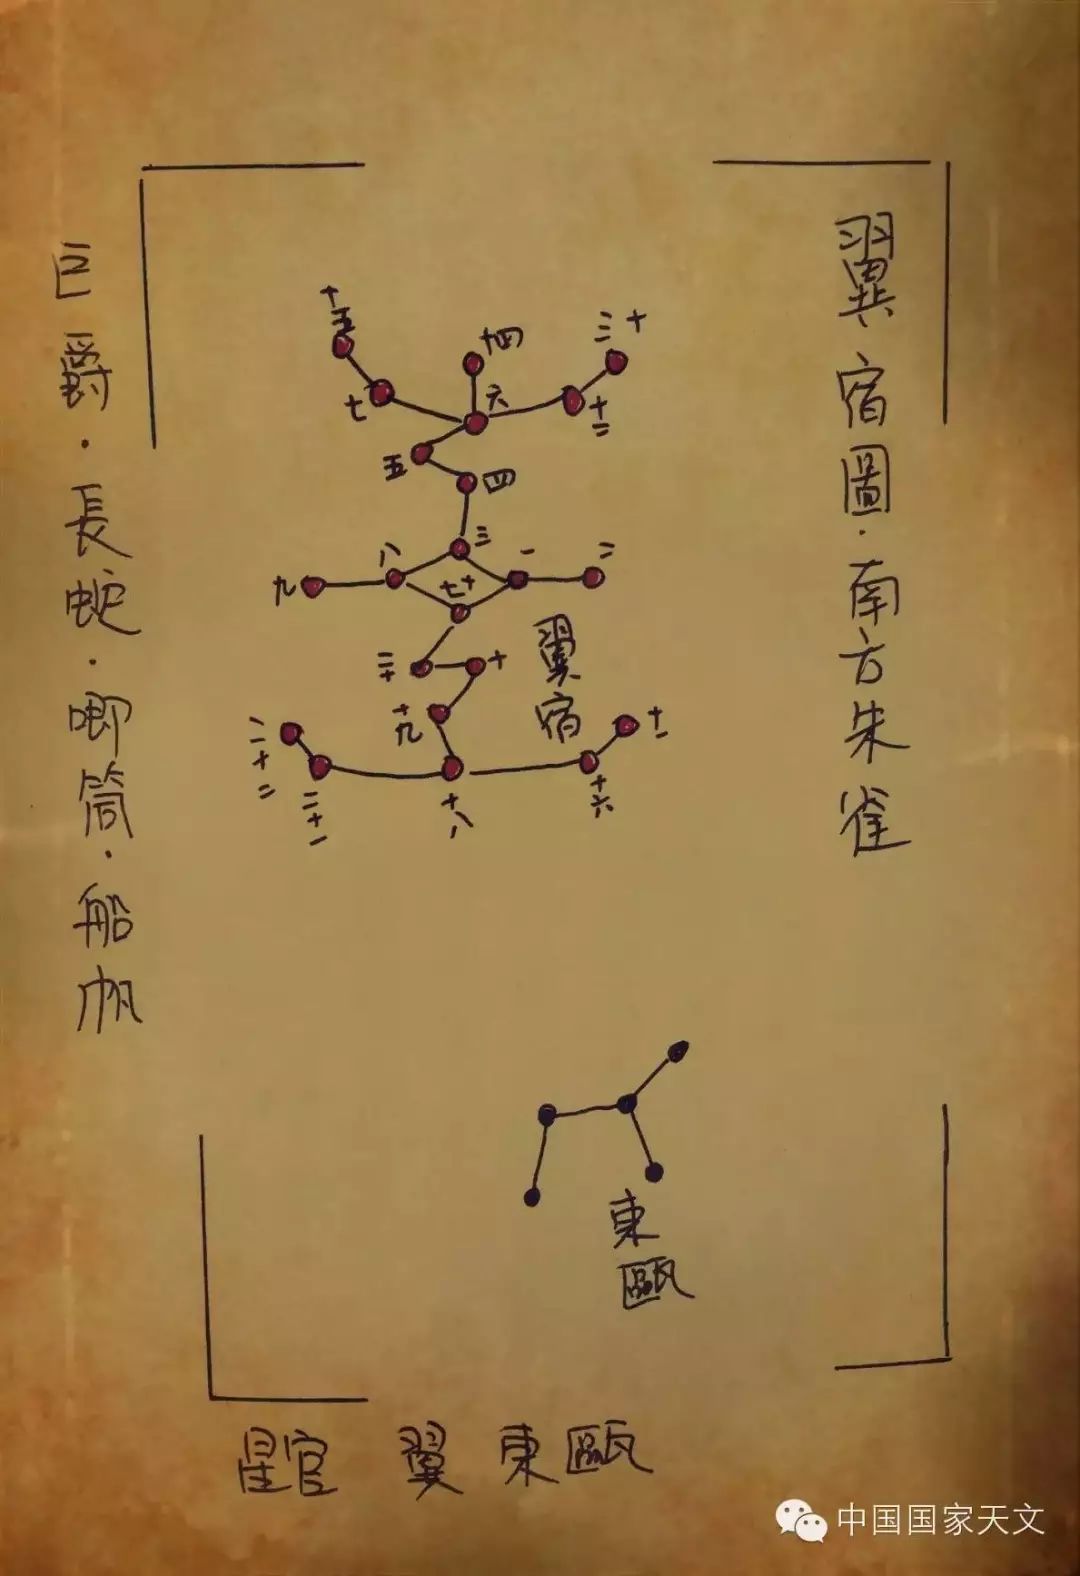 翼宿圖·南方朱雀
巨爵·長蛇·唧筒·船帆
十五
十四
十三
七
六
十二
五
四
三
八
一
二
九
十七
二十
十
翼宿
十九
十一
二十二
二十一
十八
十六
東甌
星官 翼 東甌
中国国家天文